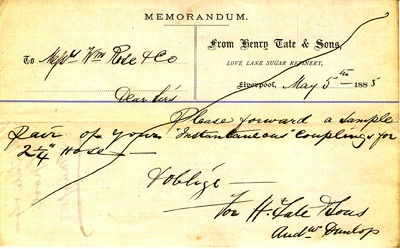 MEMORANDUM.
From Henry Tate & Sons,
To Messrs Wm Rose & Co
LOVE LANE SUGAR REFINERY,
Liverpool, May 5th 1885
Dear Sirs
Please forward a sample
pair of your "Instantaneous" Couplings for
2¼" Hose —
& oblige —
For H. Tate & Sons
Andw Dunlop